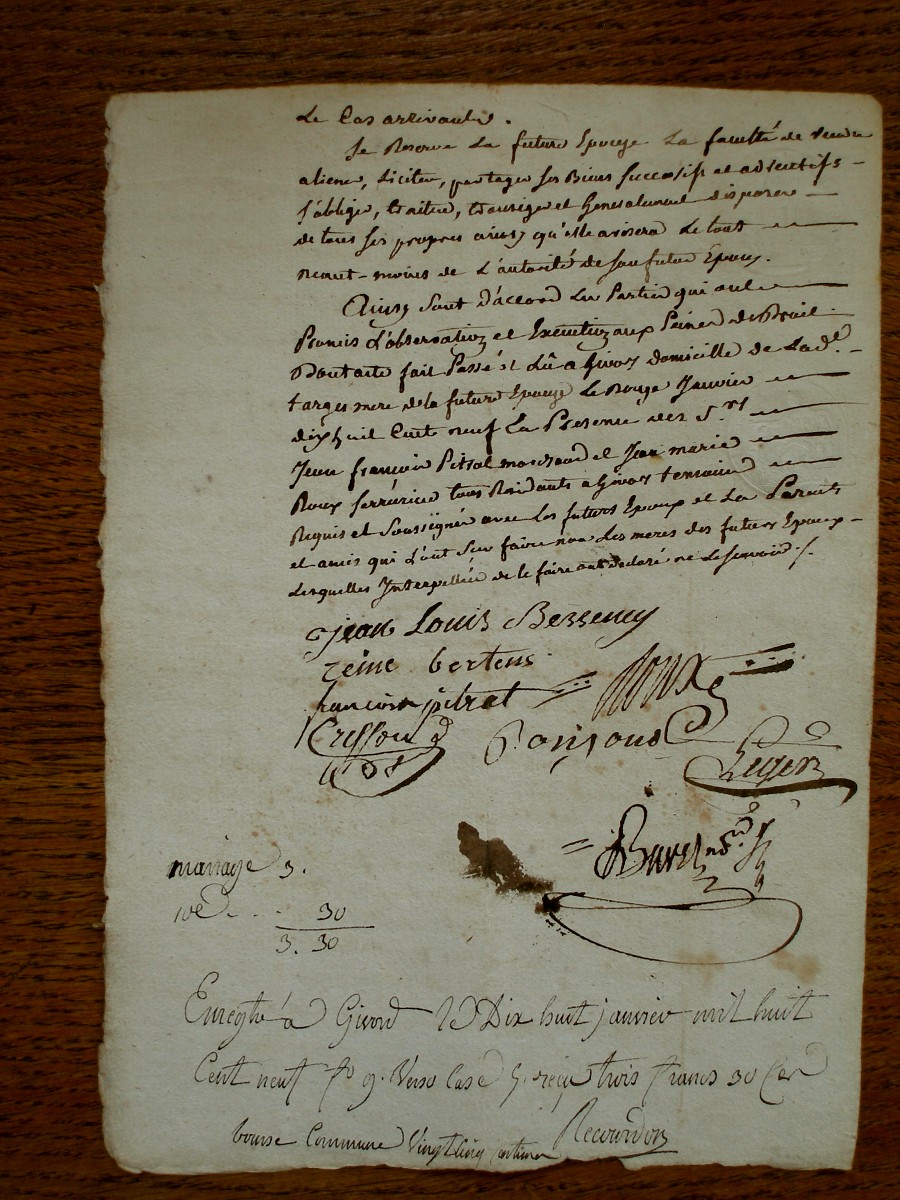 Le Cas arrivant.
Se Reserve La future Epouze La faculté de vendre
aliener, Liciter, partager ses Biens successifs et adventifs
s'obliger, traiter, transiger et Generalement disposer
de tous ses propres ainsy qu'elle avisera Le tout
neant-moins de L'autorité de son futur Epoux.
Ainsy Sont d'accord Les Parties qui ont
Promis d'observation et Execution aux Peines de Droit.
Dont acte fait Passé et Lû a Givors domicille de La de
targes mere de la future Epouze Le Janvier
dix huit Cent neuf En Presence des Srs
Jean françois Pitrat marchand et Jean marie
Roux serrurier tous Residants a Givors temoins
Requis et Soussignés avec Les futurs Epoux et Les Parents
et amis qui L'ont Seu faire non Les meres des futurs Epoux
Lesquelles Interpellées de le faire ont declaré ne Le Scavoir ./.
jean Louis Bessenay
reine bertens
françois pitrat Roux
Cresson Ponsons
Leger
Buret nre
mariage 3.
10e . . . 30
3. 30
Enregtré à Givors le Dix huit janvier mil huit
Cent neuf fo 9. Verso Case 5. reçu trois francs 30 Cen
bourse Commune Vingt Cinq centimes Recourdon